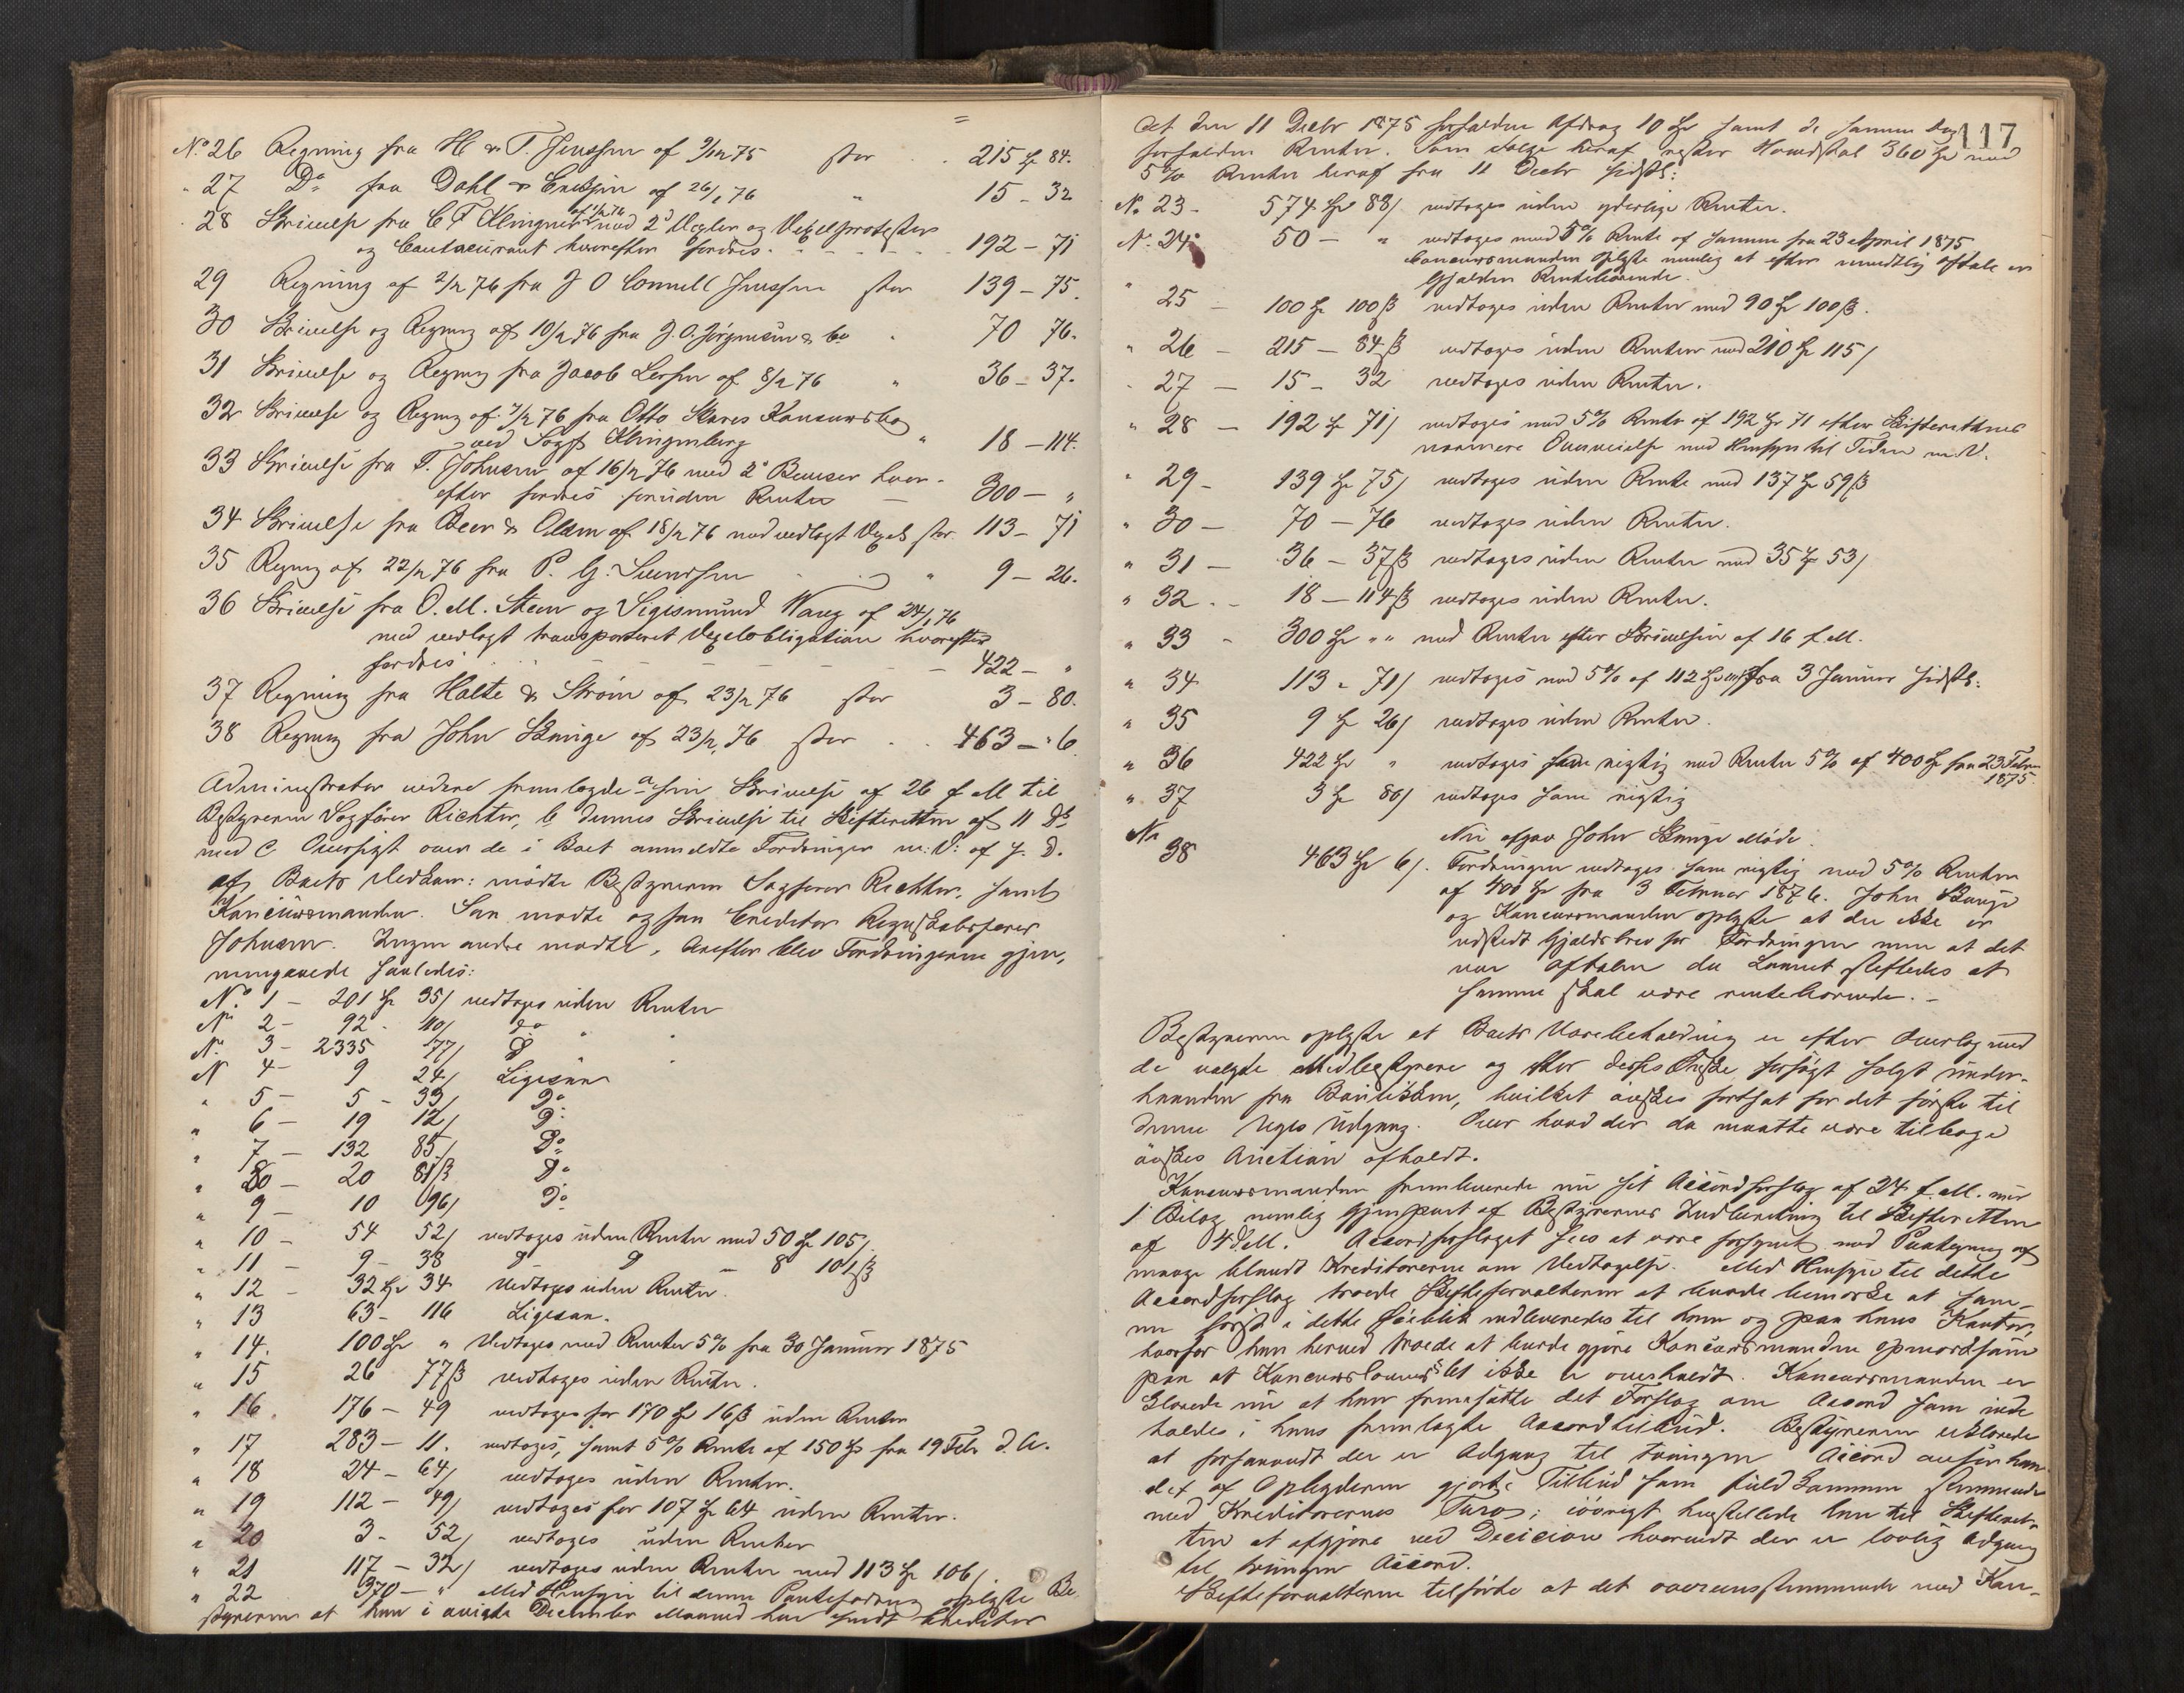 No 26 Regning fra H & T. Jenssen af 9/12 75 stor . 215 Sp 84.
" 27 Do fra Dahl & Erichsen af 26/1 76 " 15 - 32
28 Skrivelse fra C F Klingner af 1/2 76 med 2de Vexler og Vexelprotester
og Contocurant hvorefter fordres 192 - 71
29 Regning af 2/2 76 fra J O Connell Jenssen stor 139 - 75.
30 Skrivelse og Regning af 10/2 76 fra J. O. Jørgensen & Co " 70 76.
31 Skrivelse og Regning fra Jacob Larsen af 8/2 76 " 36 - 37.
32 Skrivelse og Regning af 7/2 76 fra Otto Skares Konkursbo
ved Sagf. Klingenberg " 18 - 114.
33 Skrivelse fra T. Johnsen af 16/2 76 med 2de Beviser hvor-
efter fordres foruden Renter - 300 - "
34 Skrivelse fra Beer & Olsen af 18/2 76 med vedlagt Vexel stor 113 - 71
35 Regning af 22/2 76 fra P. G. Svendsen " 9 - 26.
36 Skrivelse fra O. M. Steen og Sigismund Wang af 24/1 76
med vedlagt transporteret Vexelobligation hvorefter
fordres 422 - "
37 Regning fra Halte & Strøm af 23/2 76 stor 3 - 80.
38 Regning fra John Skauge af 23/2 76 stor . . 463 - " 6
Administrator videre fremlagde a sin Skrivelse af 26 f M til
Bestyreren Sagfører Richter, b dennes Skrivelse til Skifteretten af 11 Ds
med C Oversigt over de i Boet anmeldte Fordringer m: V: af J. D.
Af Boets Vedkom: mødte Bestyreren Sagfører Richter, samt
Konkursmanden. Saa mødte ogsaa Creditor Regnskabsfører
Johnsen. Ingen andre mødte, derefter blev Fordringerne gjen-
nemgaaede saaledes:
No 1 - 201 Sp 35/ vedtoges uden Renter
No 2 - 92 - 40/ do "
No. 3 - 2335 77/ D "
N 4 - 9 24/ Ligesaa
" 5 - 5 - 33/ Do
" 6 - 19 12/ Do
" 7 - 132 85/ Do
" 8 - 20 81ß Do
" 9 - 10 96/ Do
" 10 - 54 52/ vedtoges uden Renter med 50 Sp 105/.
" 11 - 9 - 38 D D - 8 101ß
" 12 - 32 Sp 34 Vedtoges uden Renter.
" 13 63 - 116 Ligesaa.
" 14. 100 Sp " Vedtoges med Renter 5% fra 30 Januar 1875
" 15 26 77ß vedtoges uden Renter.
" 16. 176 - 49 vedtoges for 170 Sp 16ß uden Renter
" 17 283 - 11. vedtoges, samt 5% Rente af 150 Sp fra 19 Febr d. A.
" 18 24 - 64/ vedtoges uden Renter.
" 19 112 - 49/ vedtoges for 107 Sp 64 uden Renter.
" 20 3 - 52/ vedtoges uden Renter
" 21 117 - 32/ vedtoges uden Renter med 113 Sp 106/.
" 22 370 - " Med Hensyn til denne Pantefordring oplyste Be-
styreren at han i avigte December Maaned har sendt Creditor
117
det den 11 Decbr 1875 forfaldne Afdrag 10 Sp samt de samme Dag
forfaldne Renter. Som Følge heraf rester Hovedstol 360 Sp med
5% Renter heraf fra 11 Decbr sidstl:
No. 23 - 574 Sp 88/ vedtoges uden yderlige Renter.
No. 24 50 - " vedtoges med 5% Rente af samme fra 23 April 1875
Concursmanden oplyste nemlig at efter mundtlig Aftale er
Gjælden Rentebærende.
" 25 - 100 Sp 100ß vedtoges uden Renter med 90 Sp 100ß.
" 26 - 215 - 84ß vedtoges uden Renter med 210 Sp 115/
" 27 - 15 - 32 vedtoges uden Renter.
" 28 - 192 Sp 71/ vedtoges med 5% Rente af 192 Sp 71 efter Skifterettens
nærmere Overveielse med Hensyn til Tiden m. V.
" 29 - 139 Sp 75/ vedtoges uden Rente med 137 Sp 59ß
" 30 - 70 - 76 vedtoges uden Renter.
" 31 - 36 - 37ß vedtoges uden Renter med 35 Sp 53/
" 32. - 18 - 114ß vedtoges uden Renter.
" 33 - 300 Sp " " med Renter efter Skrivelsen af 16 f. M.
" 34 113 " 71/ vedtoges med 5% af 112 Sp fra 3 Januar sidstl:
" 35 9 Sp 26/ vedtoges uden Renter.
" 36 422 Sp " vedtoges som rigtig med Renter 5% af 400 Sp fra 23 Febr
1875.
" 37 3 Sp 80/ vedtoges som rigtig
No Nu afgav John Skauge Møde.
38 463 Sp 6/. Fordringen vedtoges som rigtig med 5% Renter
af 400 Sp fra 3 Februar 1876. John Skauge
og Konkursmanden oplyste at der ikke er
udstedt Gjældsbrev for Fordringen men at det
var Aftalen da Laanet stiftedes at
samme skal være rentebærende. -
Bestyreren oplyste at Boets Varebeholdning er efter Overlæg med
de valgte Medbestyrere og efter deres Ønske forsøgt solgt under-
haanden fra Boutikken, hvilket ønskes fortsat for det første til
denne Uges Udgang. Over hvad der da maatte være tilbage
ønskes Auction afholdt.
Konkursmanden fremleverede nu sit Accordforslag af 24 f. M. med
1 Bilag nemlig Gjenpart af Bestyrerens Indberetning til Skifteretten
af 4 d. M. Accordforslaget sees at være forsynet med Paategning af
mange blandt Kreditorerne om Vedtagelse. Med Hensyn til dette
Accordforslag troede Skifteforvalteren at burde bemærke at sam-
me først i dette Øieblik indleveredes til ham og paa hans Kontor,
hvorfor han herved troede at burde gjøre Konkursmanden opmærksom
paa at Konkurslovens § ikke er overholdt. Konkursmanden er-
klærede nu at han fremsatte det Forslag om Accord som inde-
holdes i hans fremlagte Accordtilbud. Bestyreren erklærede
at forsaavidt der er Adgang til tvungen Accord anser han
det af Opbyderen gjorte Tilbud som fuldkommen stemmende
med Kreditorernes Tarv; iøvrigt henstillede han til Skifteret-
ten at afgjøre ved Decision hvorvidt der er lovlig Adgang
til tvungen Accord.
Skifteforvalteren tilførte at det overensstemmende med Kon-